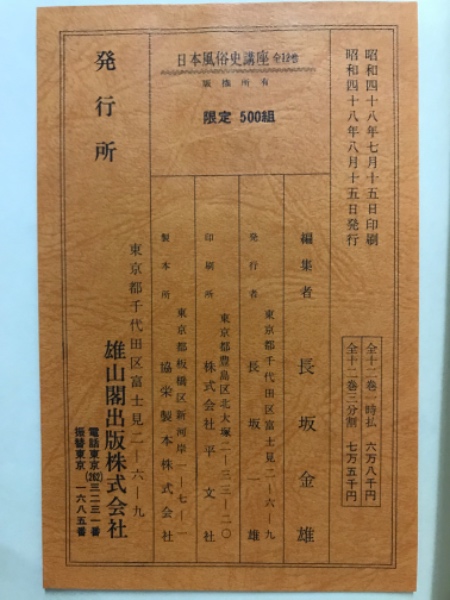 昭和四十八年七月十五日印刷
昭和四十八年八月十五日発行
全十二巻一時払 六万八千円
全十二巻三分割 七万五千円
日本風俗史講座 全12巻
版権所有
限定 500組
編集者 長坂金雄
発行者 東京都千代田区富士見二―六―九
長坂一雄
印刷所 東京都豊島区北大塚二―三三―二〇
株式会社平文社
製本所 東京都板橋区新河岸一―七―一
協栄製本株式会社
発行所
東京都千代田区富士見二―六―九
雄山閣出版株式会社
電話東京(262)三二三一番
振替東京 一六八五番